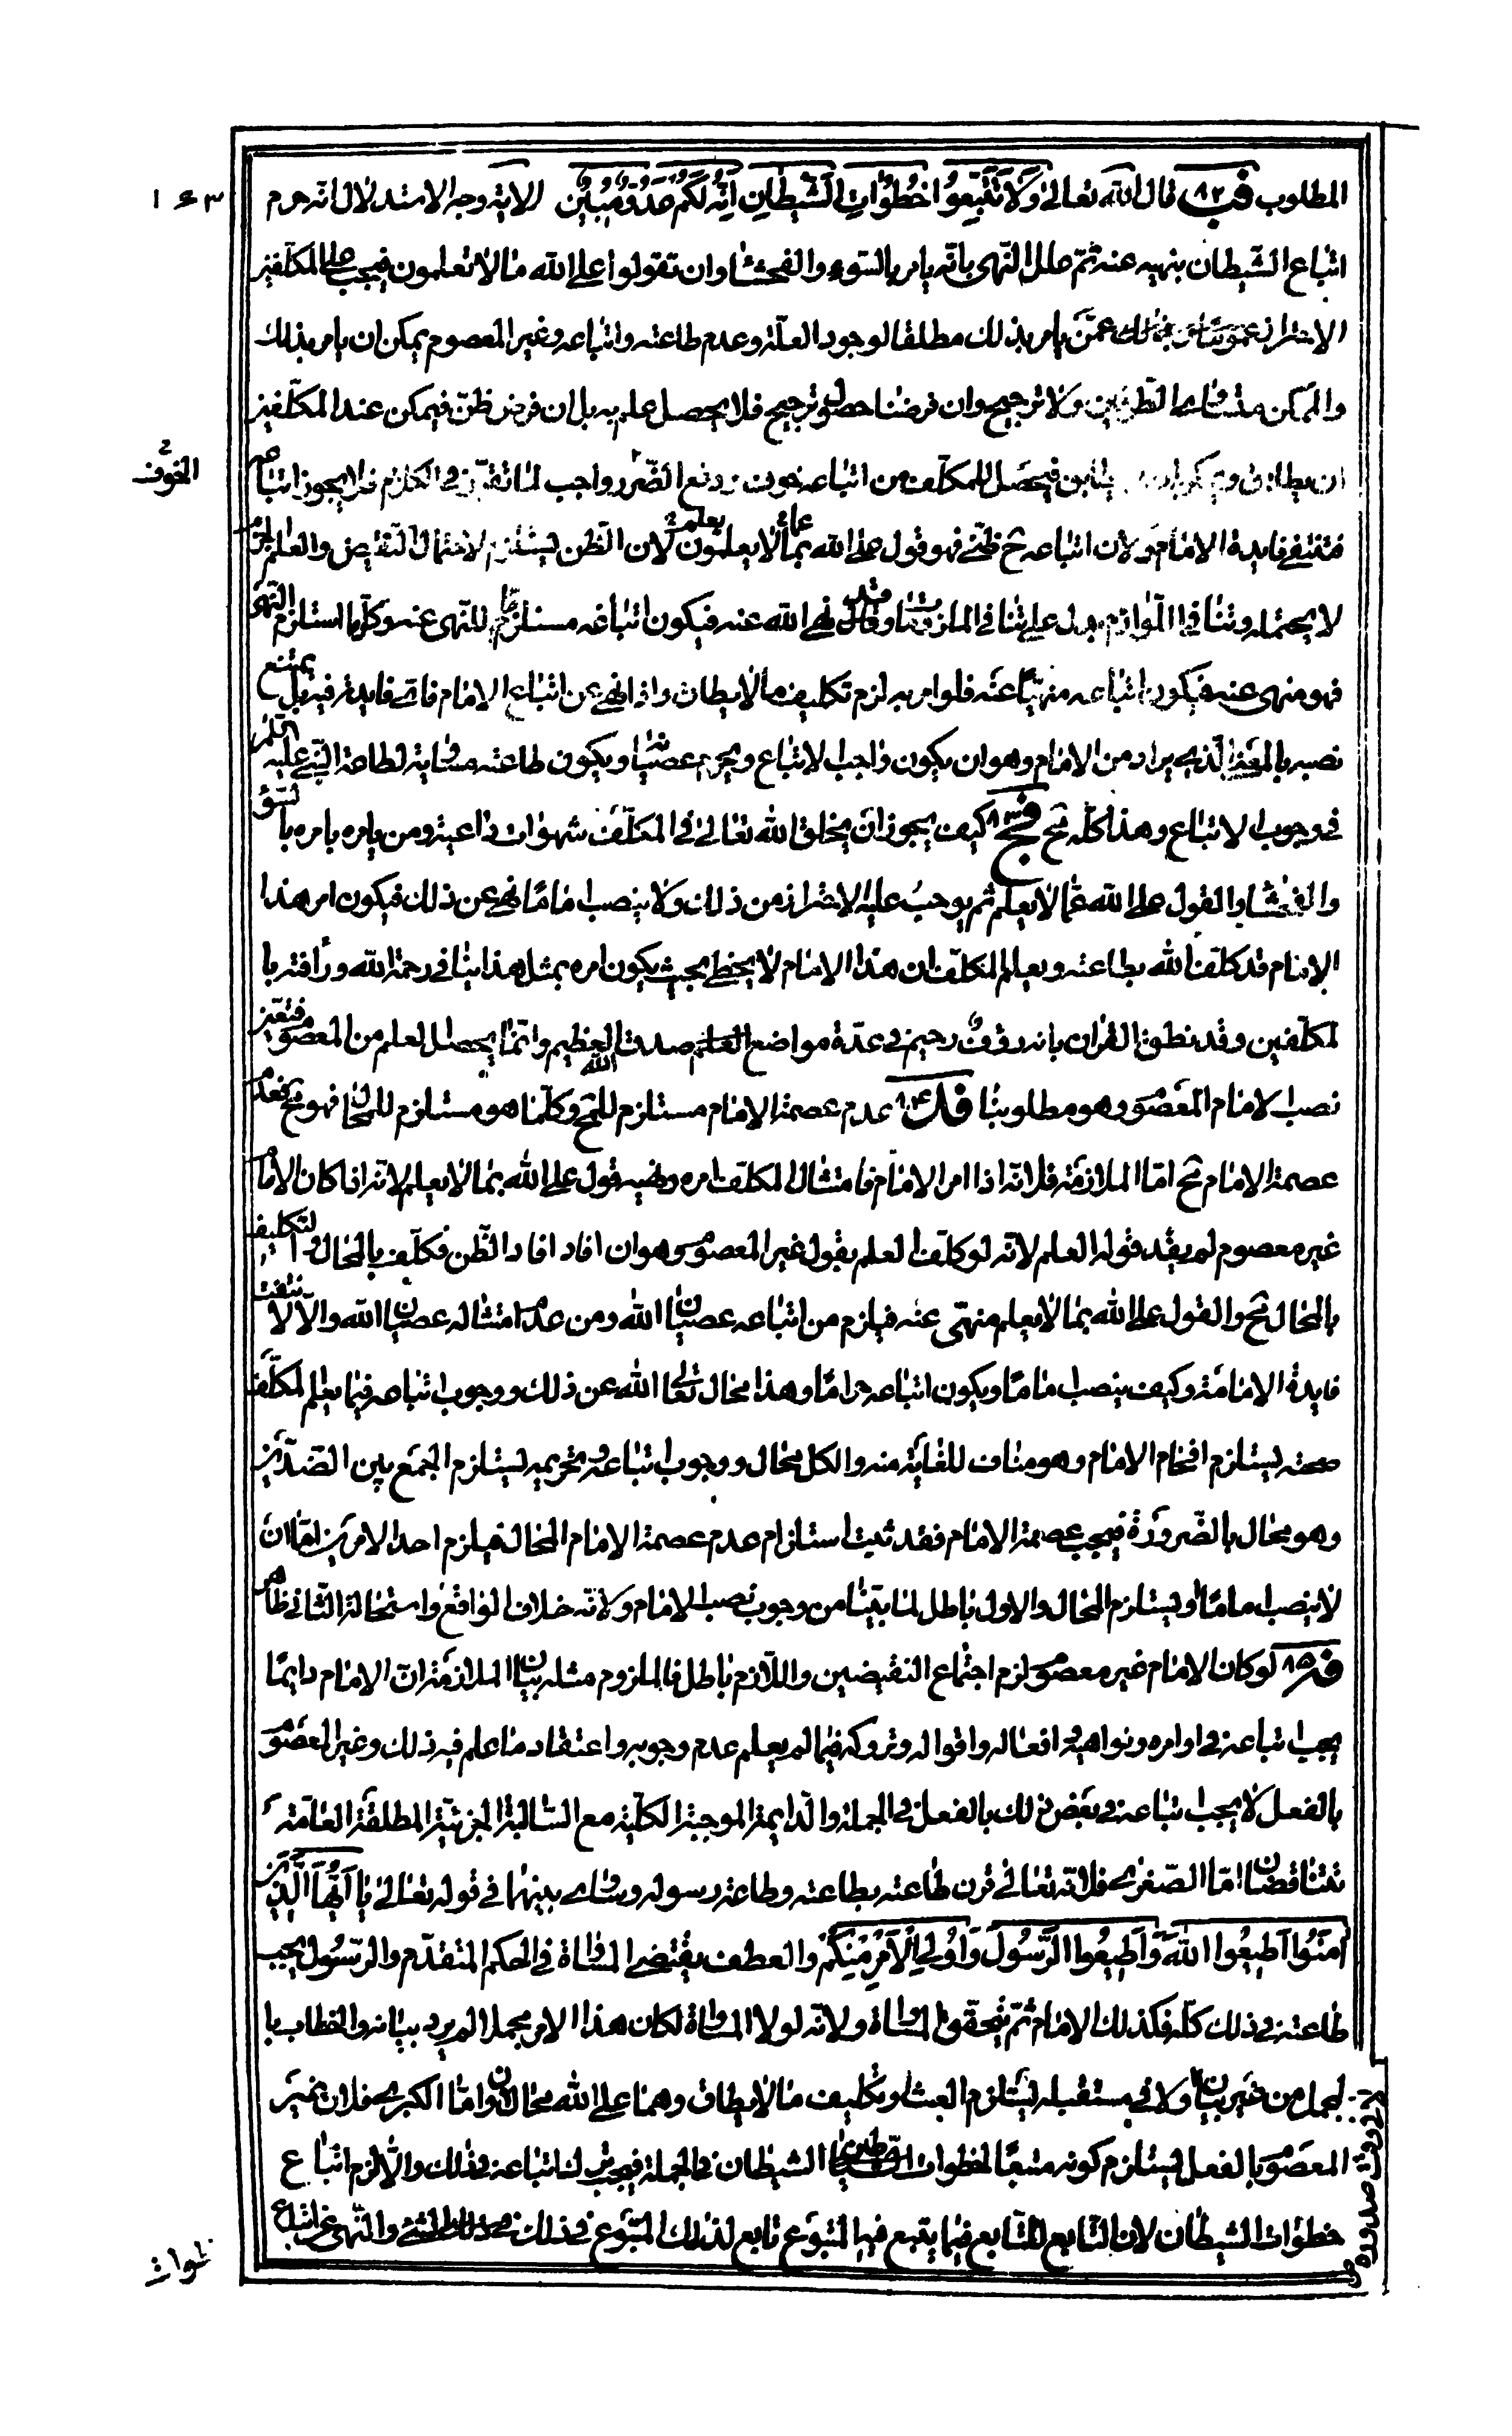 ١٤٣
المطلوب فب ٨٢ قال الله تعالى وَلَا تَتَّبِعُوا خُطُوَاتِ الشَّيْطَانِ اِنَّهُ لَكُمْ عَدُوٌّ مُبِينٌ الاية وجه الاستدلال انه حرم
اتباع الشيطان بنهيه عنه ثم علل النهى بانه يامر بالسوء والفحشاء وان تقولوا على الله ما لا تعلمون فيجب على المكلفين
الاحتراز عمن يامر بذلك مطلقا لوجود العلة وعدم طاعته واتباعه وغير المعصوم يمكن ان يامر بذلك
والممكن متساوى الطرفين ولا ترجيح وان فرضنا حصول ترجيح فلا يحصل علم به بل ان فرض ظن فيمكن عند المكلفين
ان يطابق ويمكن ان يطابق فيحصل للمكلف من اتباعه خوف ودفع الضرر واجب لما تقرر فى الكلام فلا يجوز اتباعه
الخوف
فتنتفى فايدة الامام ولان اتباعه ح ظنى فهو قول على الله بما لا يعلمون لان الظن يستلزم لاحتمال النقيض والعلم
لا يحتمله وتنافى اللوازم يدل على تنافى الملزومات وقد نهى الله عنه فيكون اتباعه مستلزما للنهى عنه وكلما استلزم النهى
فهو منهى عنه فيكون اتباعه منهيا عنه فلو امر به لزم تكليف ما لا يطاق واذا نهى عن اتباع الامام فاى فايدة فيه بل يمتنع
نصبه بالمعنى الذى يراد من الامام وهو ان يكون واجب الاتباع ويحرم عصيانه ويكون طاعته مساوية لطاعة النبى عليه السلم
فى وجوب الاتباع وهذا كله ح فج ٨٣ كيف يجوز ان يخلق الله تعالى فى المكلف شهوات داعية ومن يامره بامره بالسوء
والفحشاء والقول على الله بما لا يعلم ثم يوجب عليه الاحتراز من ذلك ولا ينصب اماما نهى عن ذلك فيكون امر هذا
الامام قد كلفنا الله بطاعته ويعلم المكلف ان هذا الامام لا يخطى بحيث يكون امره بمثل هذا ينافى رحمة الله ورأفته با
لمكلفين وقد نطق القران بانه رؤف رحيم فى عدة مواضع صدق الله العظيم وانما يحصل العلم من المعصوم فتعين
نصب الامام المعصوم وهو مطلوبنا فد ٨٤ عدم عصمة الامام مستلزم للمح وكلما هو مستلزم للمحال فهو مح فعدم
عصمة الامام مح اما الملازمة فلانه اذا امر الامام فامتثال المكلف امره ونهيه قول على الله بما لا يعلم لانه اذا كان الامام
غير معصوم لم يفد قوله العلم لانه لو كلف العلم بقول غير المعصوم وهو ان افاد افاد الظن فكلف بالمحال والتكليف
بالمحال مح والقول على الله بما لا يعلم منهى عنه فيلزم من اتباعه عصيان الله ومن عدم امتثاله عصيان الله والا لانتفت
فايدة الامامة وكيف ينصب اماما ويكون اتباعه حراما وهذا محال تعالى الله عن ذلك ووجوب اتباعه فيما يعلم المكلف
صحته يستلزم افحام الامام وهو مناف للغاية منه والكل محال ووجوب اتباعه وتحريمه يستلزم الجمع بين الضدين
وهو محال بالضرورة فيجب عصمة الامام فقد ثبت استلزام عدم عصمة الامام المحال فيلزم احد الامرين اما ان
لا ينصب اماما او يستلزم المحال والاول باطل لما بينا من وجوب نصب الامام ولانه خلاف الواقع واستحالة الثانى ظاهر
فه ٨٥ لو كان الامام غير معصوم لزم اجتماع النقيضين واللازم باطل فالملزوم مثله بيان الملازمة ان الامام دايما
يجب اتباعه فى اوامره ونواهيه وافعاله واقواله وتروكه فيما لم يعلم عدم وجوبه واعتقاد ما علم فيه ذلك وغير المعصوم
بالفعل لا يجب اتباعه فى بعض ذلك بالفعل فى الجملة والدايمة الموجبة الكلية مع السالبة الجزئية المطلقة العامة
تتناقضان اما الصغرى فلانه تعالى قرن طاعته بطاعته وطاعة رسوله وساوى بينهما فى قوله تعالى يَا اَيُّهَا الَّذِينَ
آمَنُوا اَطِيعُوا اللّٰهَ وَاَطِيعُوا الرَّسُولَ وَاُولِى الْاَمْرِ مِنْكُمْ والعطف يقتضى المساواة فى الحكم المتقدم والرسول يجب
طاعته فى ذلك كله فكذلك الامام ثم تحقق المساواة ولانه لولا المساواة لكان هذا الامر مجملا لم يرد بيانه والخطاب با
لمجمل من غير بيان ولا فى مستقبله يستلزم العبث او تكليف ما لا يطاق وهما على الله محالان واما الكبرى فلان غير
المعصوم بالفعل يستلزم كونه متبعا لخطوات الشيطان فى الجملة فيجب ترك اتباعه فى ذلك والا لزم اتباع
خطوات الشيطان لان التابع للتابع فيما يتبع فيه المتبوع تابع لذلك المتبوع فى ذلك الشىء والنهى عن اتباع